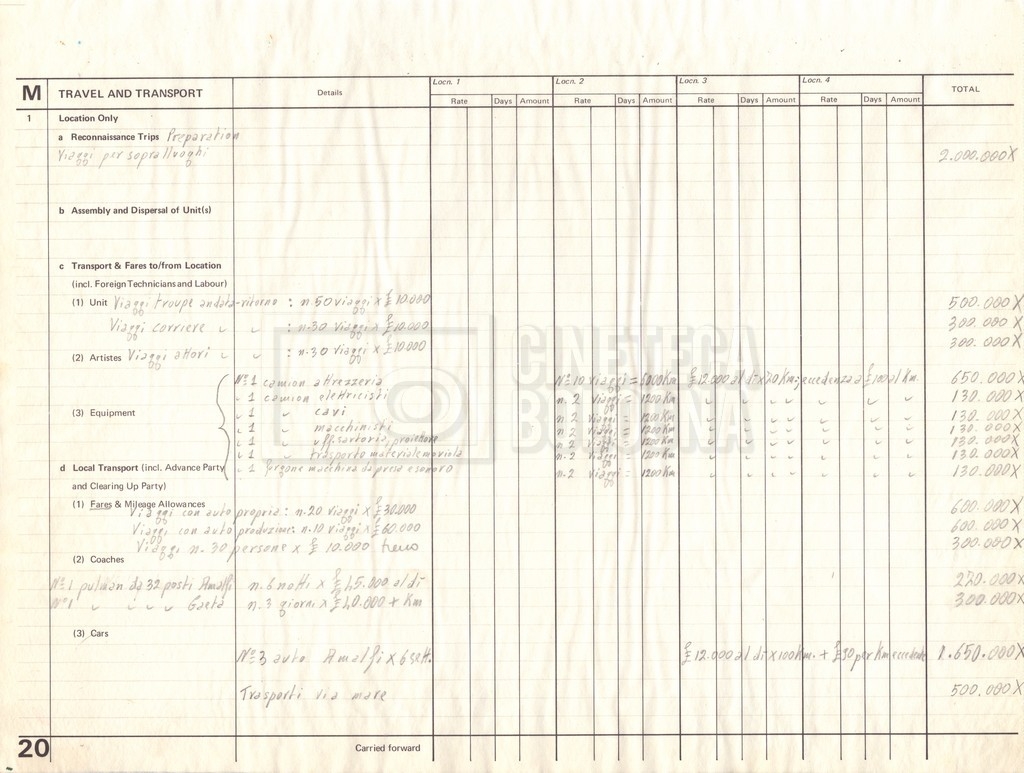 Locn. 1 Locn. 2 Locn. 3 Locn. 4
M TRAVEL AND TRANSPORT Details Rate Days Amount Rate Days Amount Rate Days Amount Rate Days Amount TOTAL
1 Location Only
a Reconnaissance Trips Preparation
Viaggi per sopralluoghi 2.000.000X
b Assembly and Dispersal of Unit(s)
c Transport & Fares to/from Location
(incl. Foreign Technicians and Labour)
(1) Unit Viaggi troupe andata-ritorno : n.50 viaggi X £ 10.000 500.000X
Viaggi corriere " " : n.30 viaggi X £ 10.000 300.000X
(2) Artistes Viaggi attori " " : n.30 viaggi X £ 10.000 300.000X
N°1 camion attrezzeria N°10 viaggi = Km £12.000 al dì x Km; eccedenza a £100 al Km 650.000X
" 1 camion elettricisti n.2 viaggi = 1200Km " " " " " " 130.000X
(3) Equipment " 1 " cavi n.2 viaggi = 1200Km " " " " " " 130.000X
" 1 " macchinisti n.2 viaggi = 1200Km " " " " " " 130.000X
" 1 " sartoria, n.2 viaggi = 1200Km " " " " " " 130.000X
" 1 " trasporto materiale moviola n.2 viaggi = 1200Km " " " " " " 130.000X
d Local Transport (incl. Advance Party " 1 furgone macchina da presa e sonoro n.2 viaggi = 1200Km " " " " " " 130.000X
and Clearing Up Party)
(1) Fares & Mileage Allowances
Viaggi con auto propria : n.20 viaggi X £30.000 600.000X
Viaggi con auto produzione: n.10 viaggi X £60.000 600.000X
Viaggi n.30 persone x £ 10.000 treno 300.000X
(2) Coaches
N°1 pulman da 32 posti Amalfi n.6 notti X £45.000 al dì 270.000X
N°1 " " " " Gaeta n.3 giorni X £40.000 + Km 300.000X
(3) Cars
N°3 auto Amalfi X 6 sett. £12.000 al dì x 100Km. + per Km eccedente 1.650.000X
Trasporti via mare 500.000X
20 Carried forward
CINETECA
BOLOGNA